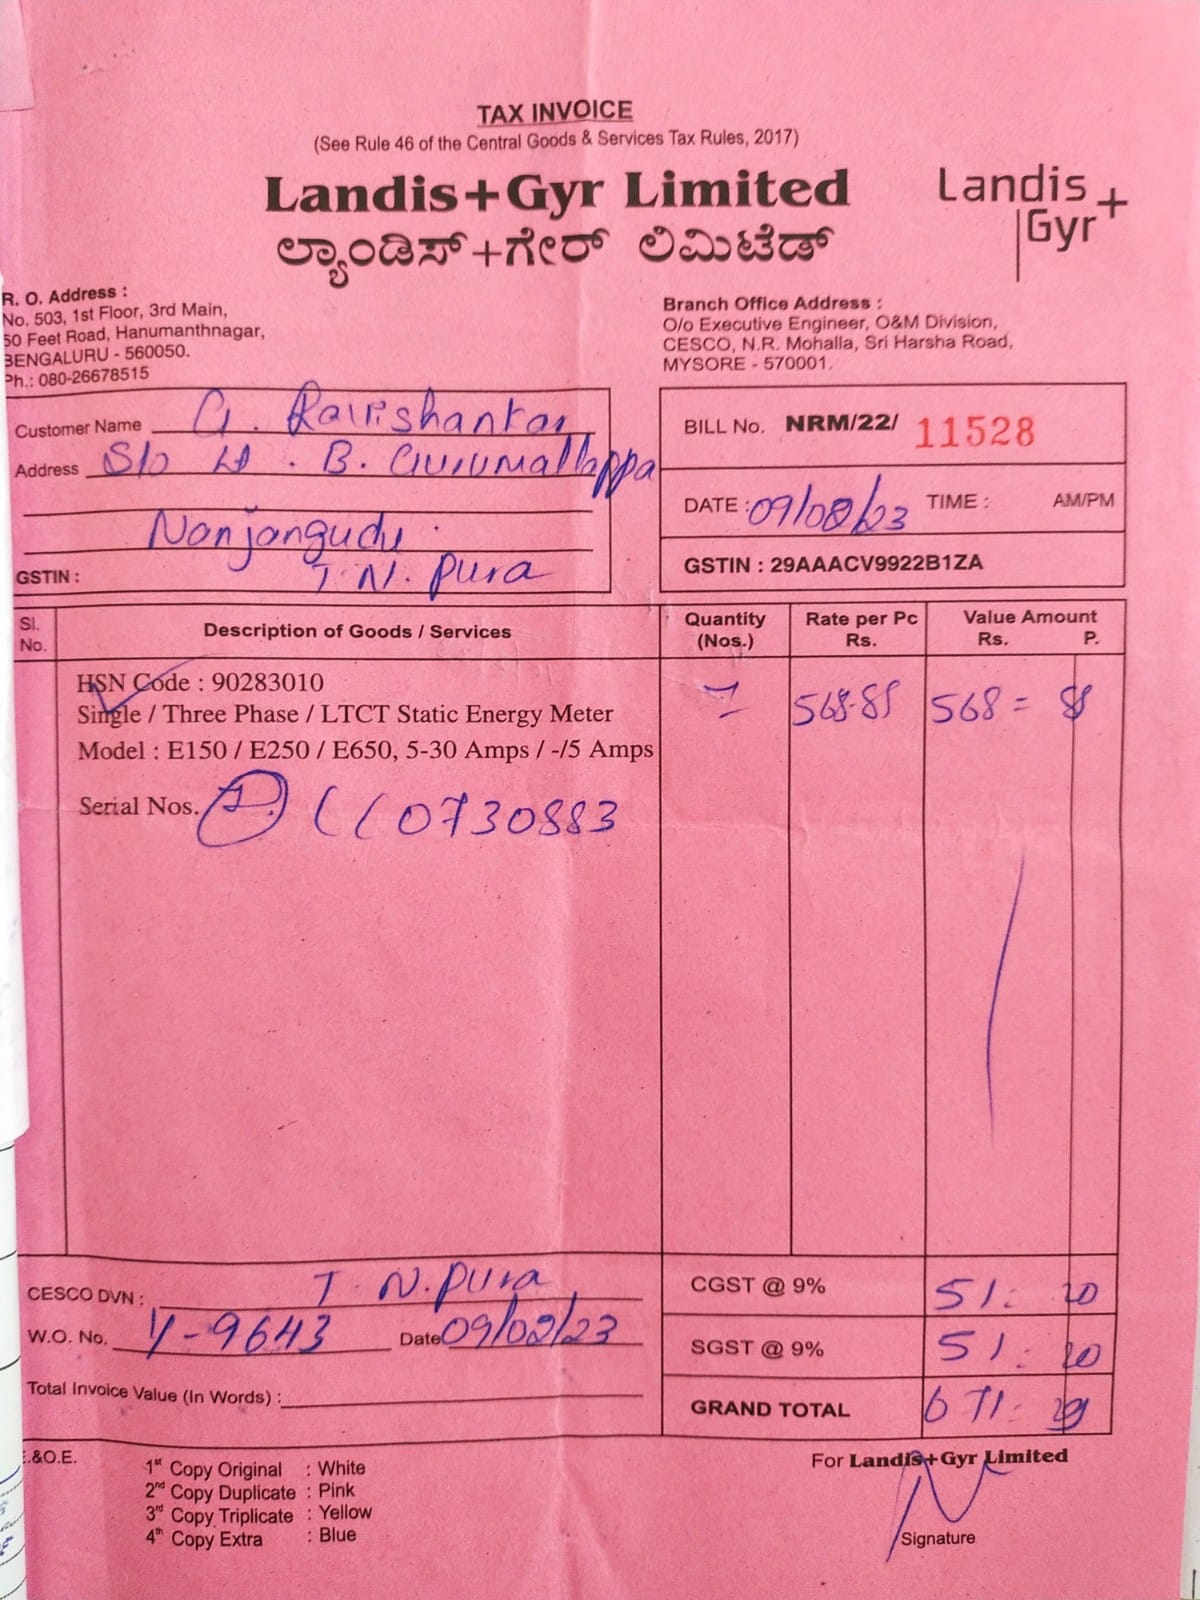 TAX INVOICE
(See Rule 46 of the Central Goods & Services Tax Rules, 2017)
Landis+Gyr Limited
ಲ್ಯಾಂಡಿಸ್+ಗೇರ್ ಲಿಮಿಟೆಡ್
Landis
Gyr+
R. O. Address :
No. 503, 1st Floor, 3rd Main,
50 Feet Road, Hanumanthnagar,
BENGALURU - 560050.
Ph.: 080-26678515
Branch Office Address :
O/o Executive Engineer, O&M Division,
CESCO, N.R. Mohalla, Sri Harsha Road,
MYSORE - 570001.
Customer Name G. Ravishankar
Address S/o Lt. B. Gurumallappa
Nanjangudu.
GSTIN : T. N. Pura
BILL No. NRM/22/ 11528
DATE : 09/08/23 TIME : AM/PM
GSTIN : 29AAACV9922B1ZA
Sl. No. Description of Goods / Services Quantity (Nos.) Rate per Pc Rs. Value Amount Rs. P.
HSN Code : 90283010
Single / Three Phase / LTCT Static Energy Meter 1 568.81 568 = 81
Model : E150 / E250 / E650, 5-30 Amps / -/5 Amps
Serial Nos. 0730883
CESCO DVN : T. N. Pura
W.O. No. Y-9643 Date 09/08/23
Total Invoice Value (In Words) :
CGST @ 9% 51. 20
SGST @ 9% 51. 20
GRAND TOTAL 671.
E.&O.E.
1st Copy Original : White
2nd Copy Duplicate : Pink
3rd Copy Triplicate : Yellow
4th Copy Extra : Blue
For Landis+Gyr Limited
Signature